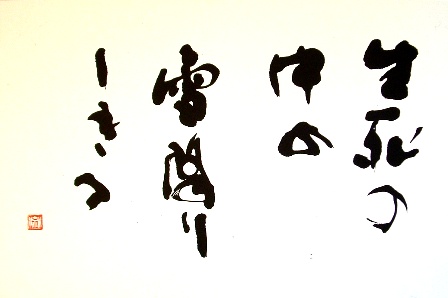 生死の
中の
雪降り
しきる